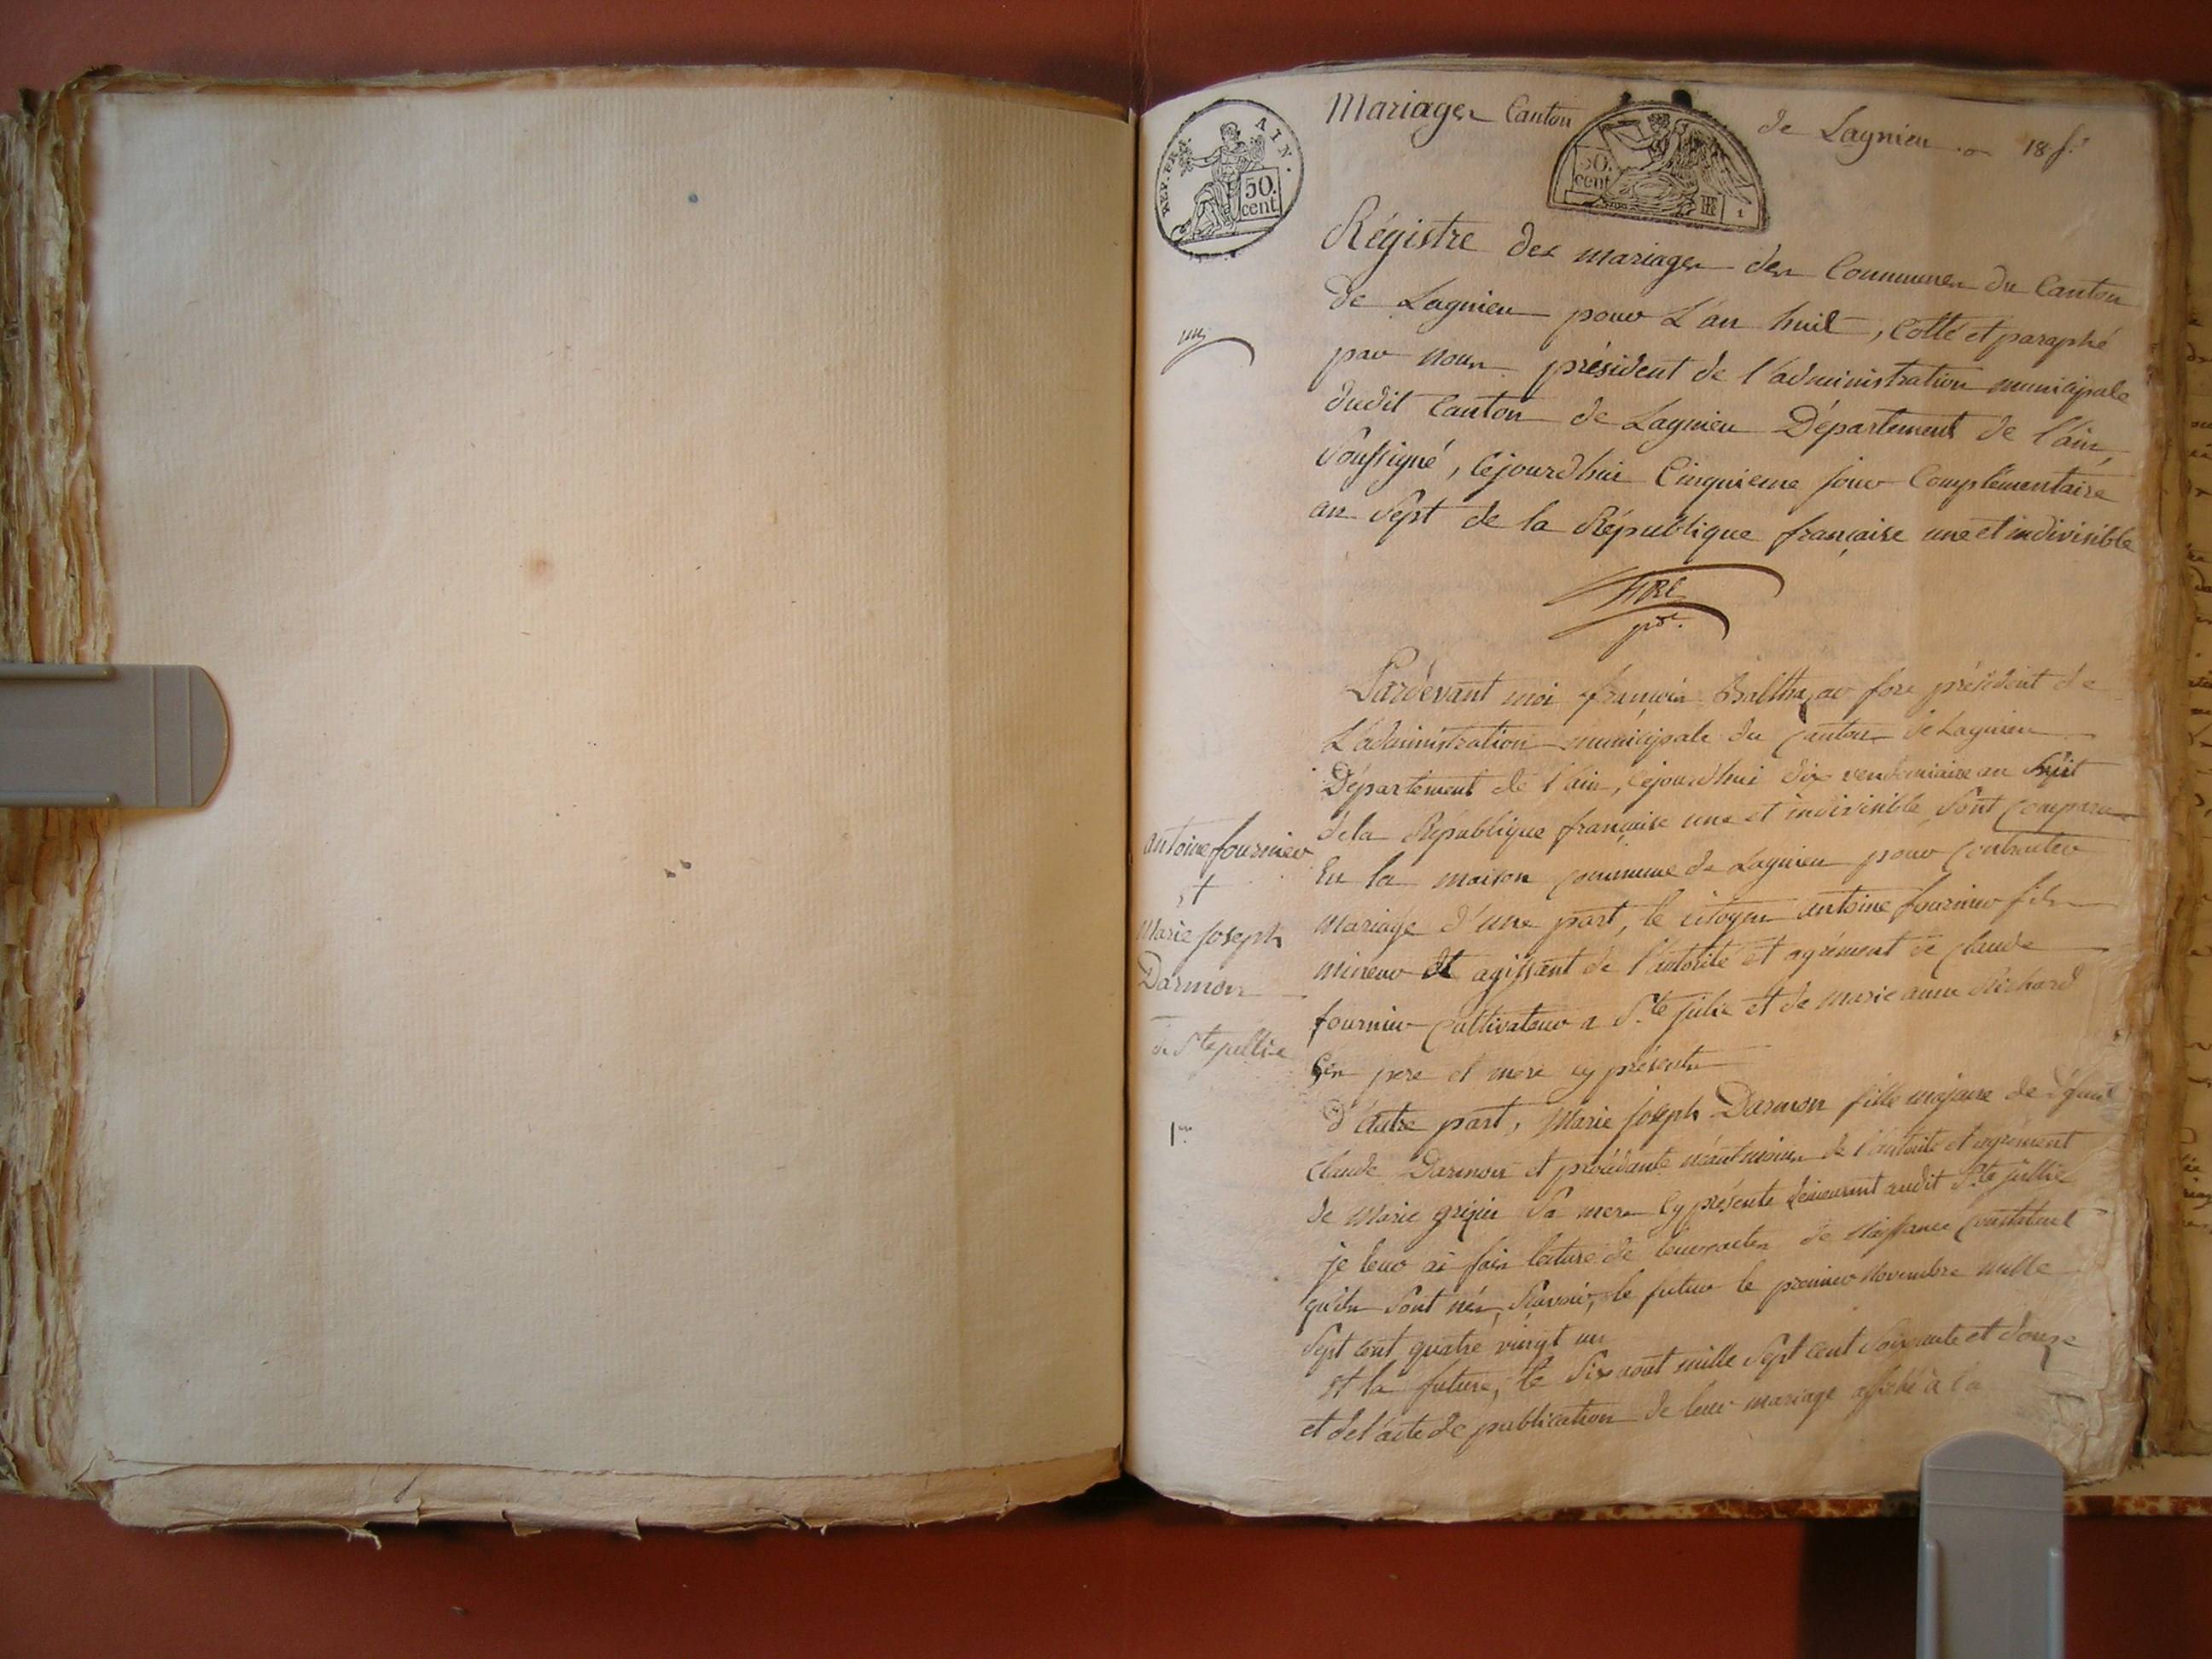 Mariages Canton de Lagnieu 18 f.
REP. FRA. AIN.
50.
cent
50.
cent
1
Régistre des mariages des Communes du Canton
de Lagnieu pour L'an huit, Cotté et paraphé
par nous président de l'administration municipale
dudit Canton de Lagnieu Département de l'ain,
Soussigné, Cejourdhui Cinquieme jour Complémentaire
an Sept de la République française une et indivisible
Pardevant moi françois Balthazar fore président de
L'administration municipale du Canton de Lagnieu
Département de l'ain, Cejourdhui dix vendemiaire an huit
de la République française une et indivisible Sont comparu
En la maison commune de Lagnieu pour contracter
mariage d'une part, le citoyen antoine fournier fils
mineur et agissant de l'autorité et agrément de Claude
fournier Cultivateur a Ste julie et de marie anne Richard
Ses pere et mere cy présents
d'autre part, Marie joseph Darmon fille majeure de défunt
Claude Darmon et procédante néantmoins de l'autorité et agrément
de Marie Sa mere Cy présente demeurant audit Ste jullie
je leur ai fais lecture de leurs actes de Naissance constatant
qu'ils Sont nés, Scavoir, le futur le premier Novembre mille
Sept cent quatre vingt un
et la future, le Six aout mille Sept cent Soixante et douze
et de l'acte de publication de leur mariage affiché à la
antoine fournier
et
Marie joseph
Darmon
de Ste jullie
1er